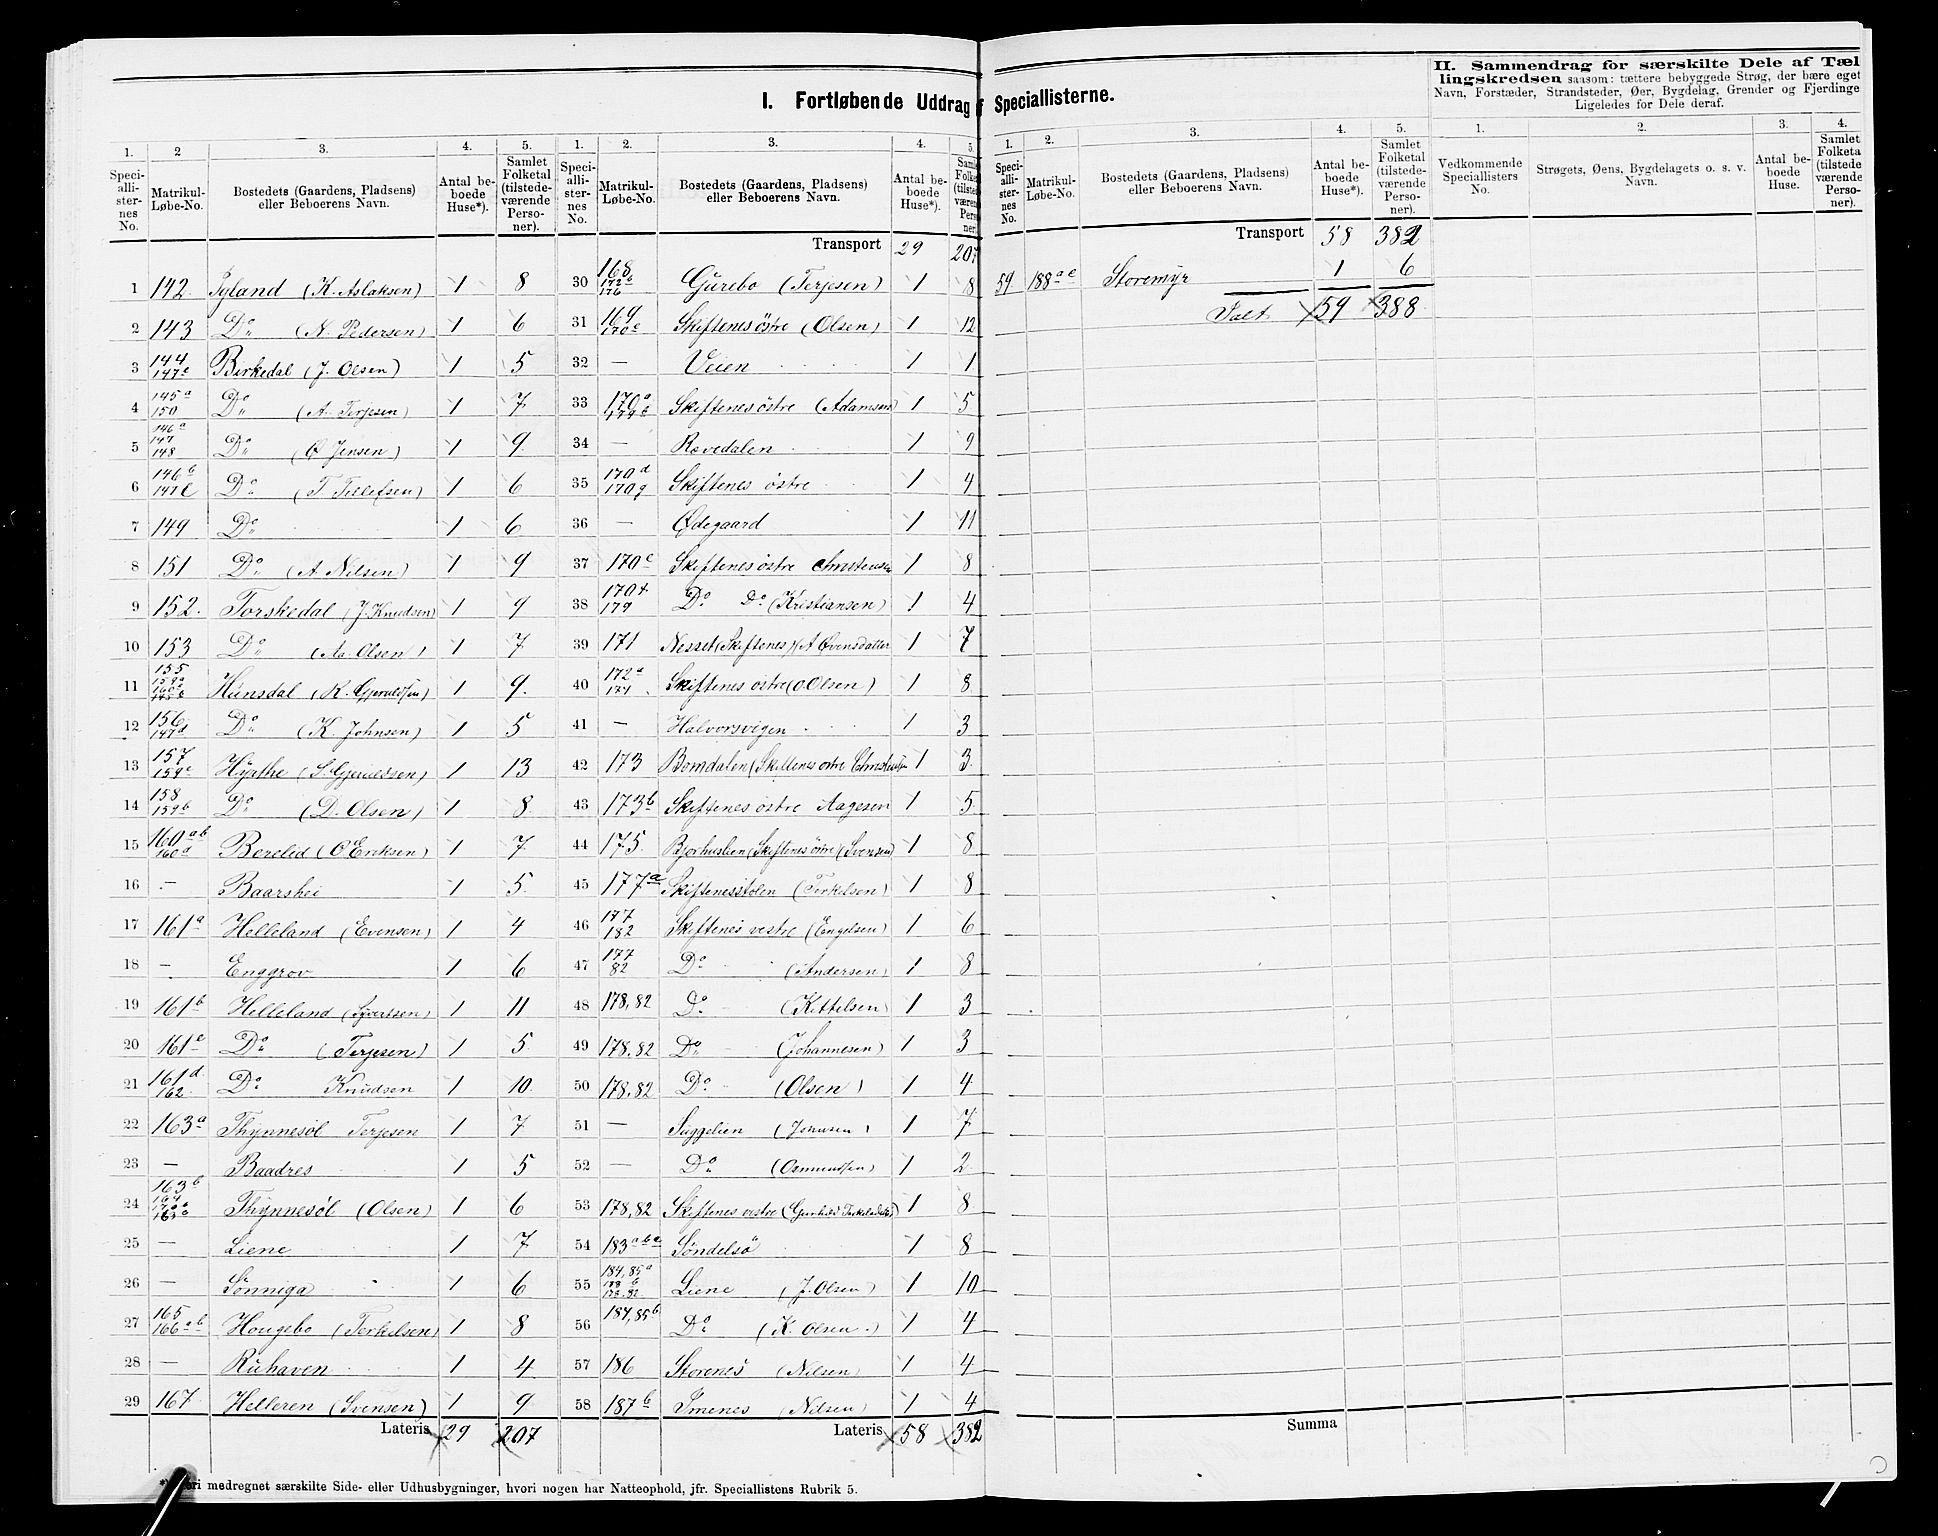 I. Fortløbende Uddrag f Speciallisterne.
II. Sammendrag for særskilte Dele af Tæl
lingskredsen saasom: tættere bebyggede Strøg, der bære eget
Navn, Forstæder, Strandsteder, Øer, Bygdelag, Grender og Fjerdinge
Ligeledes for Dele deraf.
1. 2 3. 4. 5. 1. 2. 3. 4. 5.
Speci-alli-ster-nes No. Matrikul-Løbe-No. Bostedets (Gaardens, Pladsens) eller Beboerens Navn. Antal be-boede Huse*). Samlet Folketal (tilstede-værende Perso-ner).
Speci-alli-ster-nes No. Matrikul-Løbe-No. Bostedets (Gaardens, Pladsens) eller Beboerens Navn. Antal be-boede Huse*).
1 142 Igland (K. Aslaksen) 1 8
2 143 Do (N. Pedersen) 1 6
3 144 147c Birkedal (J. Olsen) 1 5
4 145a 150 Do (A. Terjesen) 1 7
5 146a 147 148 Do (O Jensen) 1 9
6 146b Do (T Tellefsen) 1 6
7 149 Do 1 6
8 151 Do (A Nilsen) 1 9
9 152. Torskedal (J. Knudsen) 1 9
10 153 Do (Aa. Olsen) 1 7
11 155 Hunsdal 1 9.
12 156 147d Do (K. Johnsen) 1 5
13 157 159c 1 13
14 158 159b Do (D. Olsen) 1 8
15 160ab 160d Berelid (O Eriksen) 1 7
16 — Baarshei 1 5
17 161a Helleland (Evensen) 1 4
18 — Enggrov 1 6
19 161b Helleland (Syvertsen) 1 11
20 161c Do (Terjesen) 1 5
21 161d 162 Do Knudsen 1 10
22 163a Thynnesøl Terjesen 1 7
23 — Baadnes 1 5
24 163b Thynnesøl (Olsen) 1 6
25 — Liene 1 7
26 — Sønniga 1 6
27 165 166ab Hougebo (Terkelsen) 1 8
28 — Ruhaven 1 4
29 167 Helleren (Svensen) 1 9
Lateris 29 207
Transport 29 207
30 168 172c 176 Gurebo (Terjesen) 1 8
31 169 170c Skiftenes østre (Olsen) 1 12
32 — Veien 1 1
33 170a Skiftenes østre (Adamsen) 1 5
34 — Rævedalen 1 9
35 170d 170g Skiftenes østre 1 4
36 — Ødegaard 1 11
37 170e Skiftenes østre Christensen 1 8
38 170f 179 Do Do (Kristiansen) 1 4
39 171 Nesset (Skiftenes) (A Øvensdatter 1 7
40 172a 174 Skiftenes østre (O. Olsen) 1 8
41 — Halvorsvigen 1 3
42 173 Bomdalen (Skiftenes østre 1 3
43 173b Skiftenes østre Aagesen 1 5
44 175 Bjorhuslien (Skiftenes østre (Svensen) 1 8
45 177a Skiftenesstølen (Terkelsen) 1 8
46 177 182 Skiftenes vestre (Engelsen) 1 6
47 177 82 Do (Andersen) 1 8
48 178,82 Do (Kittelsen) 1 3
49 178.82 Do (Johannesen) 1 3
50 178.82 Do (Olsen) 1 4
51 — Suggelien (Johnsen) 1 7
52 — Do (Osmundsen) 1 2
53 178,82 Skiftenes vestre (Gunhild Terkelsdatter) 1 8
54 183abc Søndelsø 1 8
55 184,85a 178b 178.82 Liene (J. Olsen) 1 10
56 184,85b Do (K. Olsen) 1 4
57 186 Storenes (Nilsen) 1 4
58 187b Imenes (Nilsen) 1 4
Lateris 58 382
*) Heri medregnet særskilte Side- eller Udhusbygninger, hvori nogen har Natteophold, jfr. Speciallistens Rubrik 5.
1. 2. 3. 4. 5. 1. 2. 3. 4.
Speci-alli-ster-nes No. Matrikul-Løbe-No. Bostedets (Gaardens, Pladsens) eller Beboerens Navn. Antal be-boede Huse*). Samlet Folketal (tilstede-værende Perso-ner).
Vedkommende Speciallisters No. Strøgets, Øens, Bygdelagets o. s. v. Navn. Antal be-boede Huse. Samlet Folketa (tilstede værende Personer)
Transport 58 382
59 188ae Storemyr 1 6
Ialt 59 388
Summa